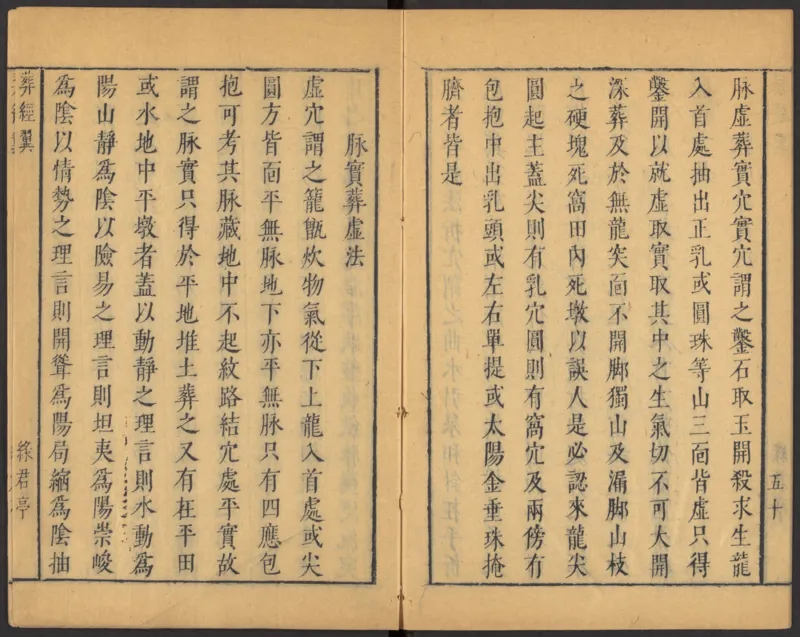 脉虛葬實穴實穴謂之鑿石取玉開殺求生龍
入首處抽出正乳或圓珠等山三靣皆虛只得
鑿開以就虛取實取其中之生氣切不可大開
深葬及於無龍突靣不開脚獨山及漏脚山枝
之硬塊死窩田內死墩以誤人是必認來龍尖
圓起主蓋尖則有乳穴圓則有窩穴及兩傍有
包抱中出乳頭或左右單提或太陽金垂珠掩
臍者皆是
五十
脉實葬虛法
虛穴謂之籠甑炊物氣從下上龍入首處或尖
圓方皆靣平無脉地下亦平無脉只有四應包
抱可考其脉藏地中不起紋路結穴處平實故
謂之脉實只得於平地堆土葬之又有在平田
或水地中平墩者蓋以動靜之理言則水動爲
陽山靜爲陰以險易之理言則坦夷爲陽崇峻
爲陰以情勢之理言則開聳爲陽局縮爲陰抽
葬經翼
綠君亭